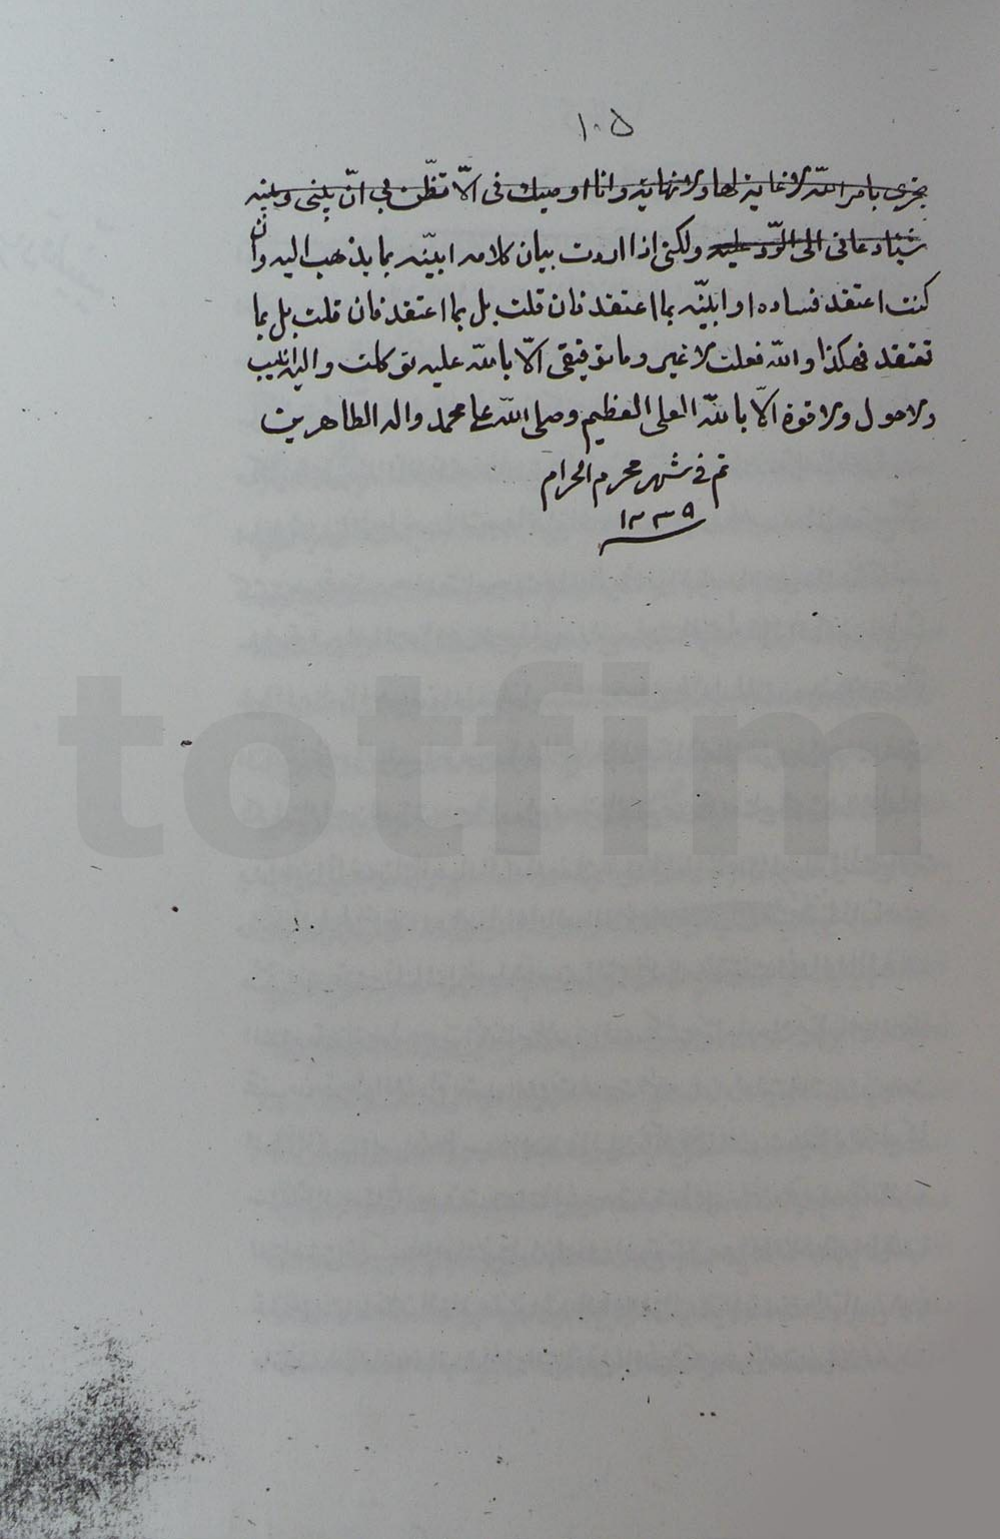 ١٠٥
يجري بامر الله لا غاية لها ولا نهاية وانا اوصيك في الّا تظنّ بي انّ بيني وبينه
شيئا دعاني الى الرّد عليه ولكني اذا اردت بيان كلامه ابيّنه بما يذهب اليه وان
كنت اعتقد فساده او ابيّنه بما اعتقد فان قلت بل بما اعتقد فان قلت بل بما
تعتقد فهكذا والله فعلت لا غير وما توفيقي الّا بالله عليه توكلت واليه انيب
ولا حول ولا قوة الّا بالله العلي العظيم وصلى الله على محمد واله الطاهرين
تم في شهر محرم الحرام
١٢٣٩
totfim